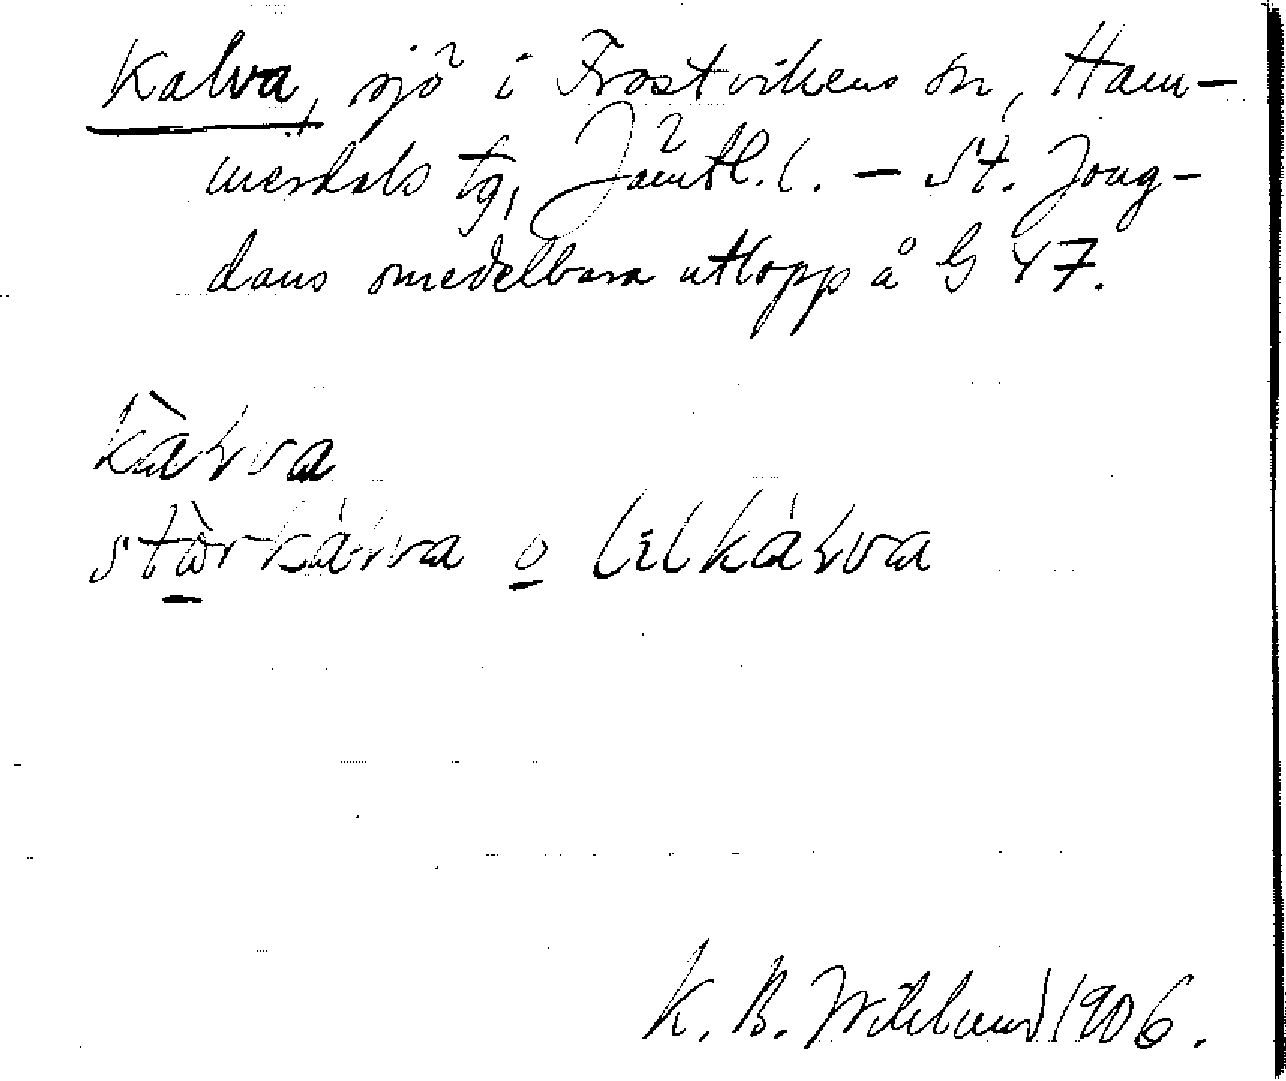 Kalva, sjö i Frostvikens sn, Ham-
merdals tg, Jämtl. l. – St. Jong-
dans omedelbara utlopp å G 47.
kàƚva
stòrkáƚva o lilkáƚva
K. B. Wiklund 1906.